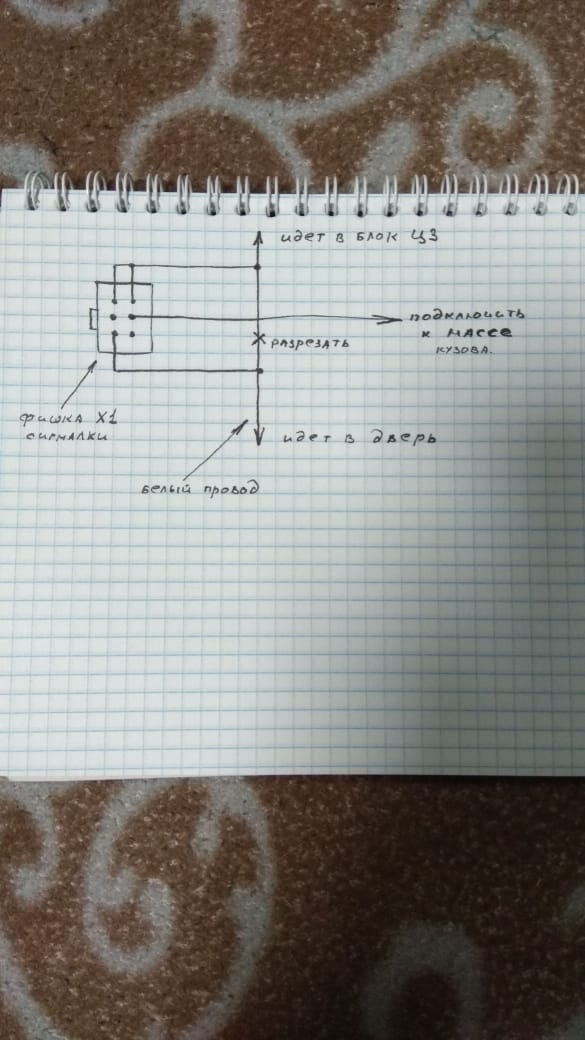 идет в блок ЦЗ
подключить
к массе
кузова.
разрезать
фишка X1
сигналки
идет в дверь
белый провод